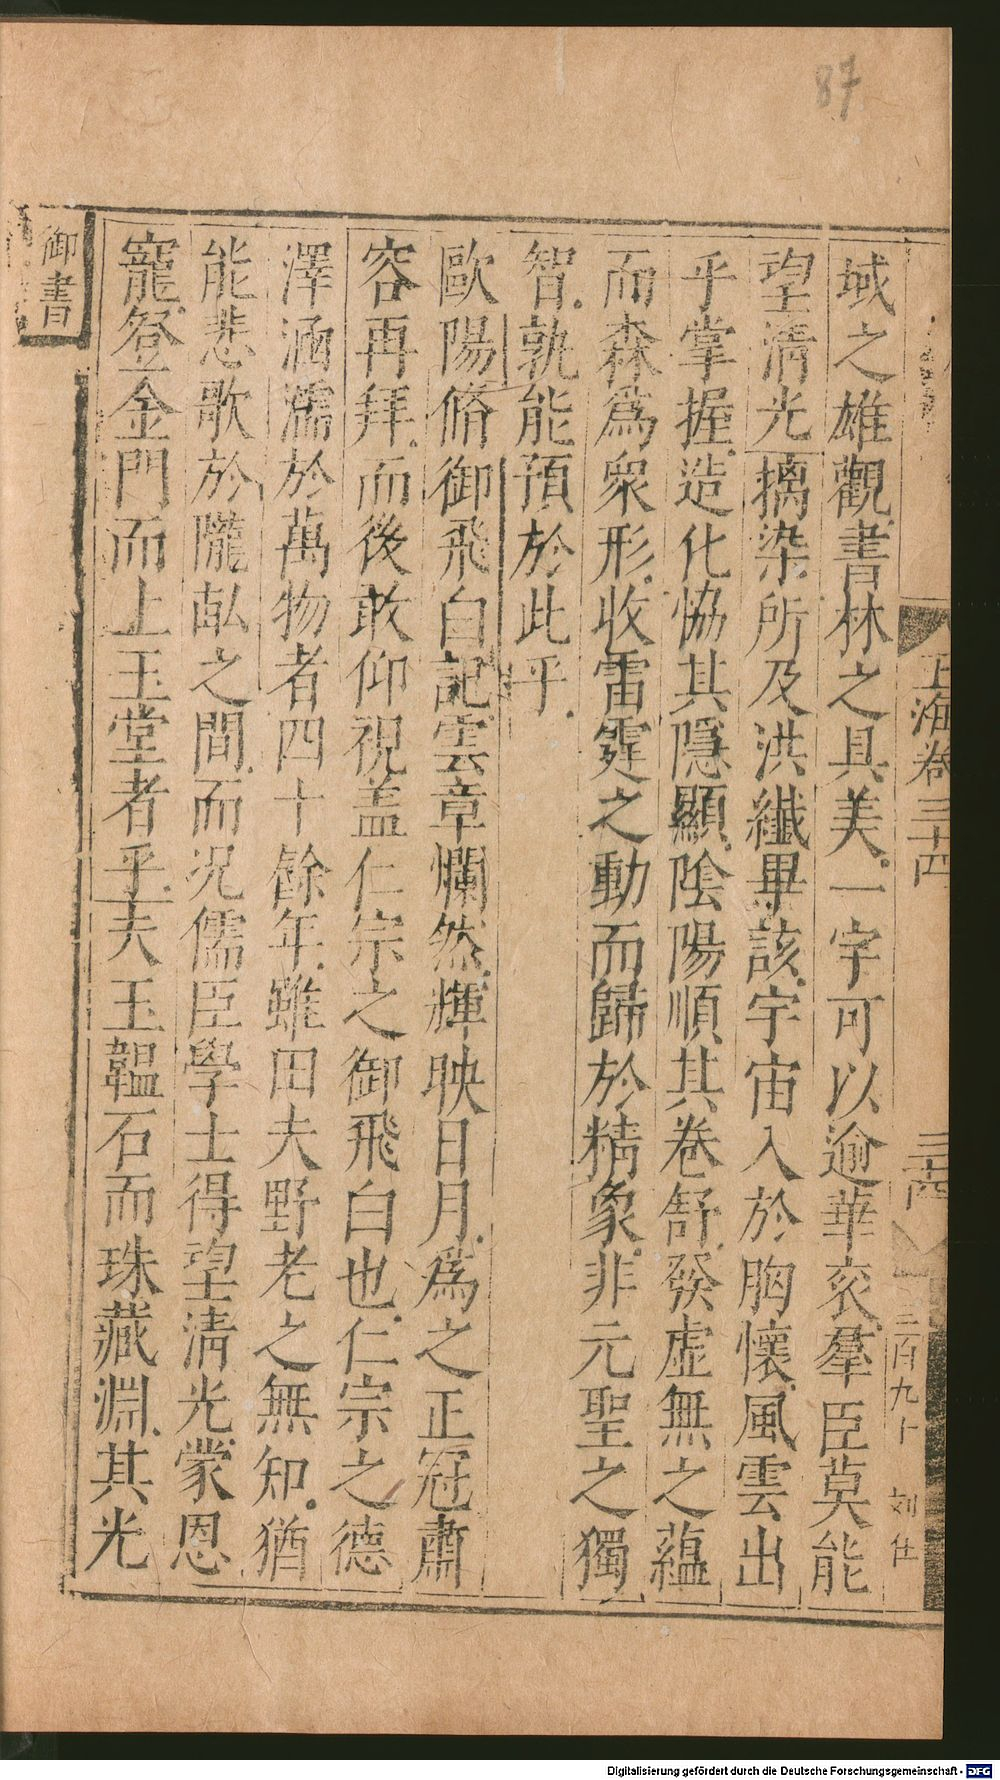 87
玉海卷三十四
三十四
三百九十
刘仕
域之雄觀書林之具美一字可以逾華衮羣臣莫能
望清光摛染所及洪纖畢該宇宙入於胸懷風雲出
乎掌握造化恊其隱顯陰陽順其卷舒發虛無之蘊
而森爲衆形收雷霆之動而歸於精象非元聖之獨
智孰能預於此乎
歐陽脩御飛白記雲章爛然輝映日月爲之正冠肅
容再拜而後敢仰視盖仁宗之御飛白也仁宗之德
澤涵濡於萬物者四十餘年雖田夫野老之無知猶
能悲歌於隴畝之間而况儒臣學士得望清光蒙恩
寵登金門而上玉堂者乎夫玉韞石而珠藏淵其光
御書
Digitalisierung gefördert durch die Deutsche Forschungsgemeinschaft - DFG